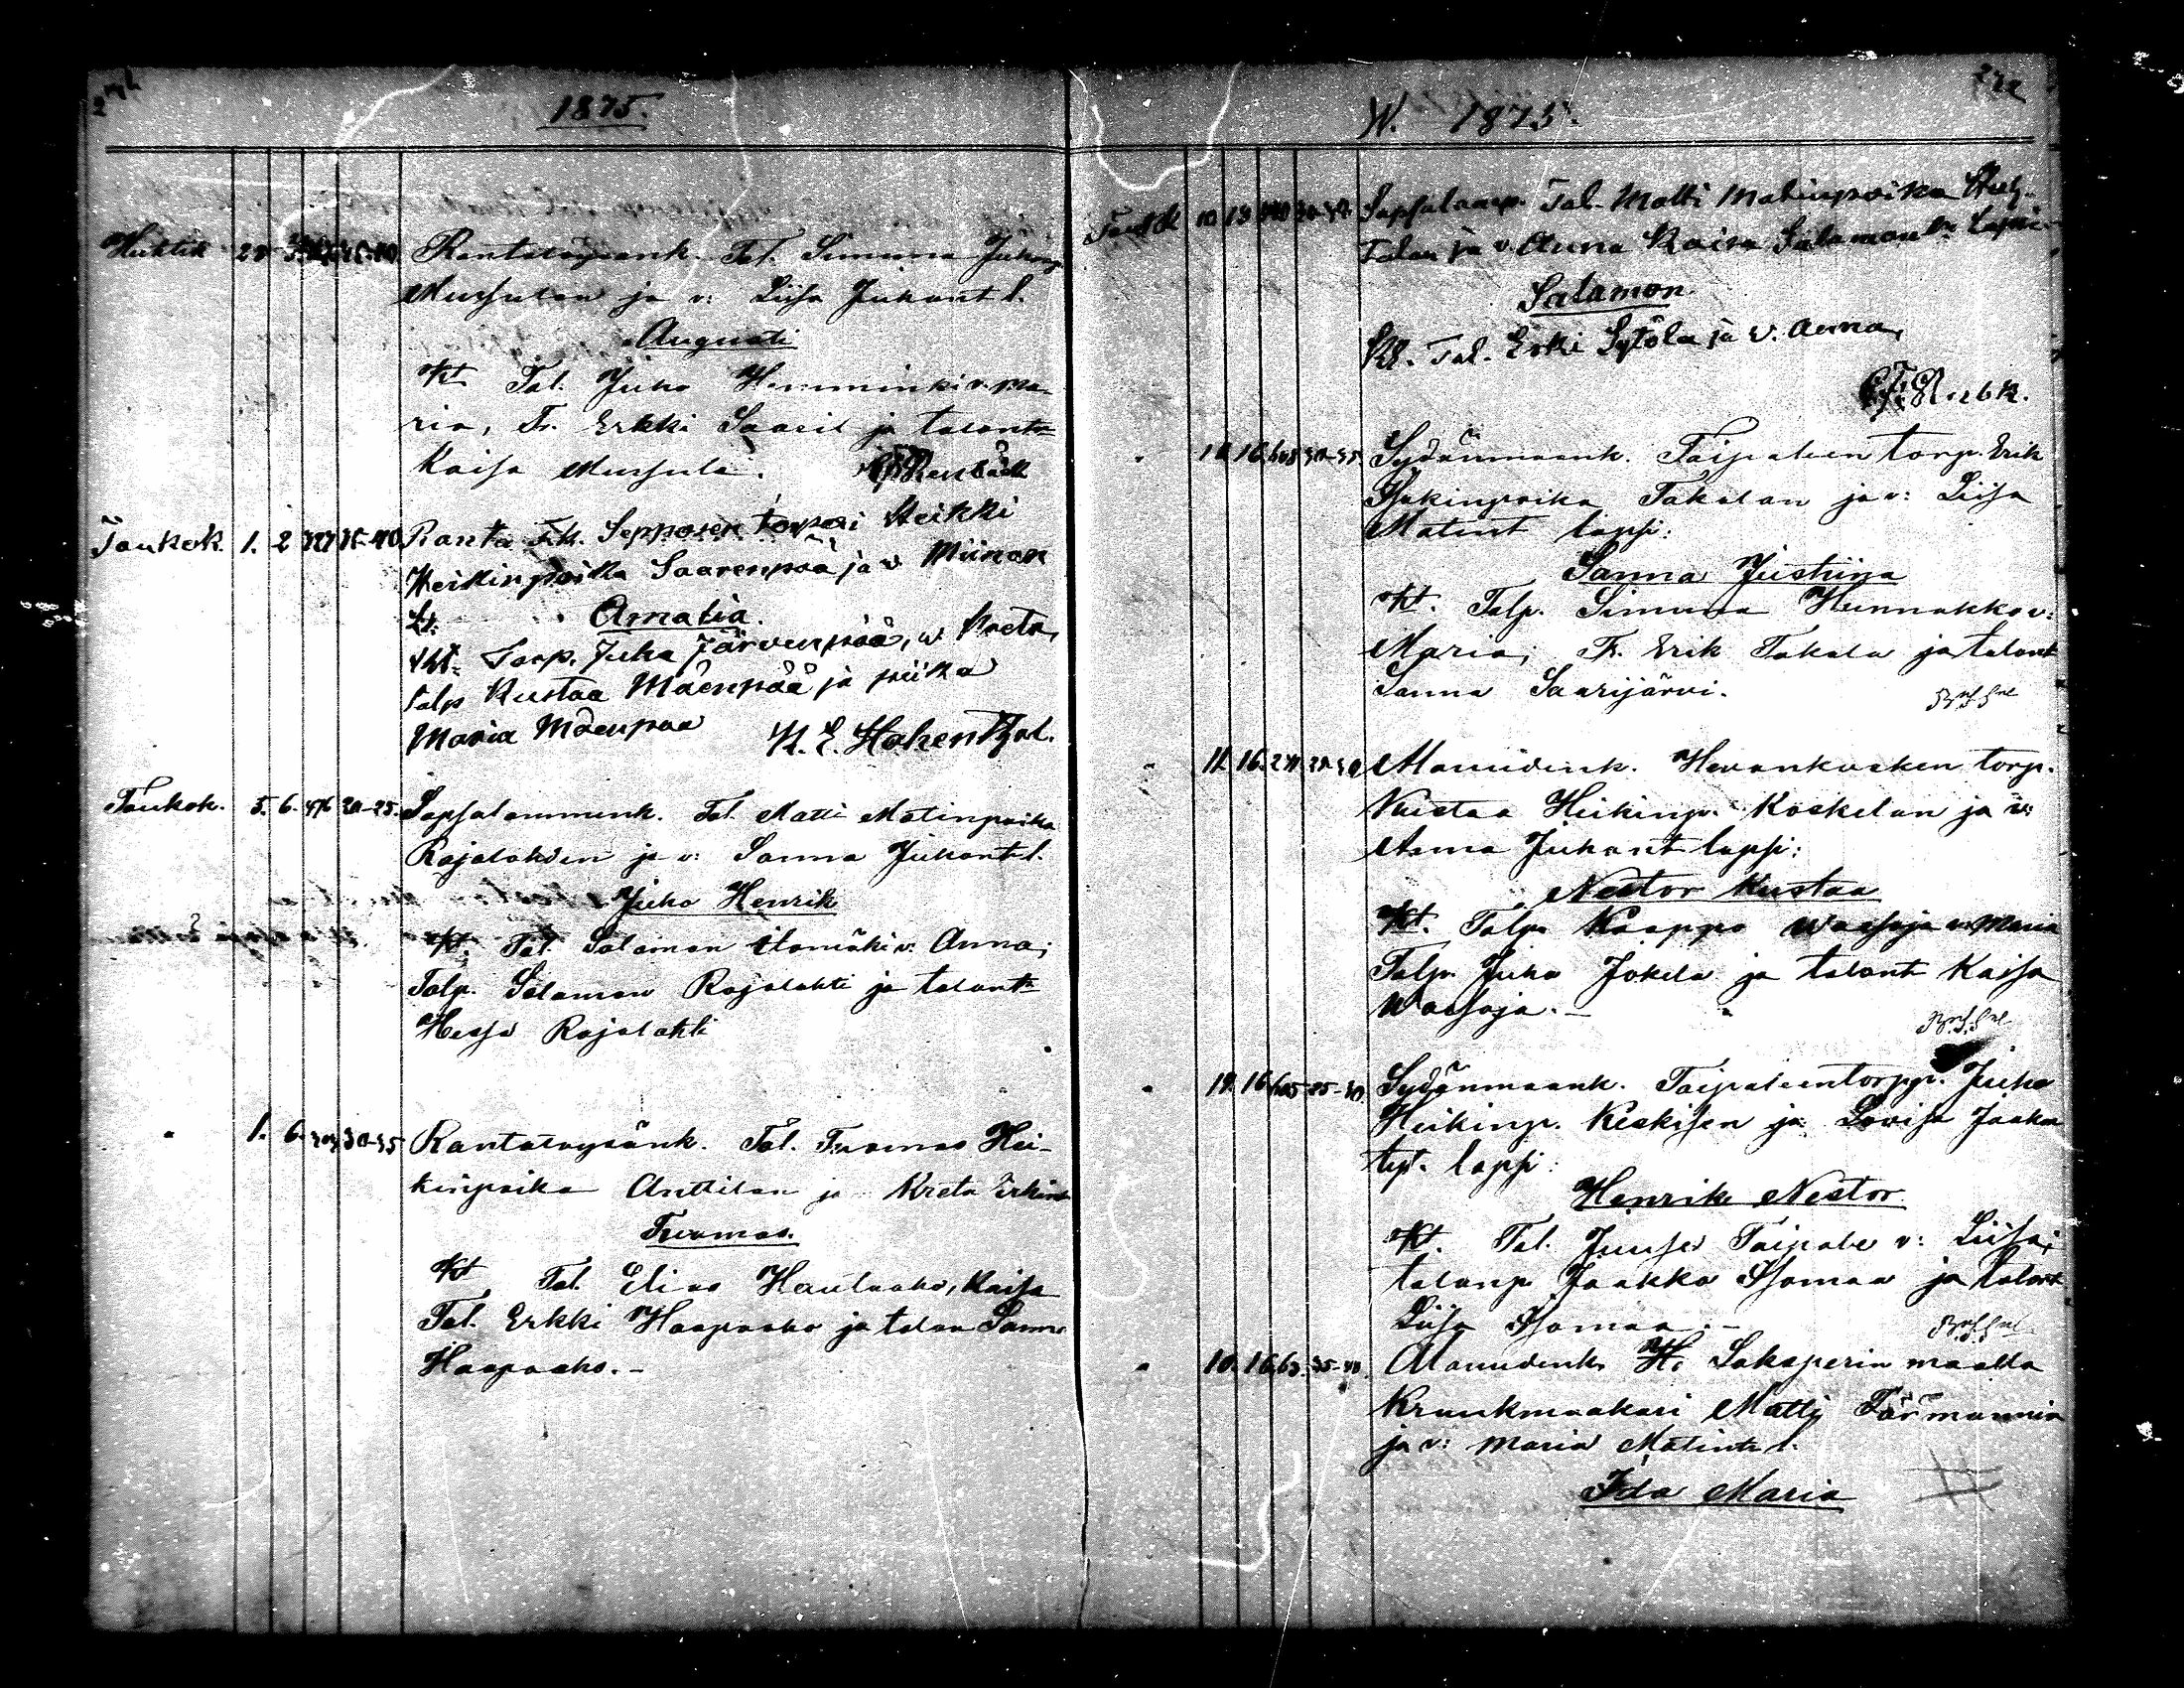 1875.
Huhtik 28
Rantatöysänk. Tal. Simuna Juhonp.
Mursulan ja v: Liisa Juhont l.
Augusti
Kt Tal. Juho Hemminki v. Ma-
ria, Tr. Erkki Saari ja talont
Kaisa Mursula.
Toukok. 1. 2 35-40 Ranta Tk. Sepposen torpari Heikki
Heikinpoika Saarenpää ja v Miinan
Lt. Amalia.
Kt. Torp. Juha Järvenpää, w. Kreta,
talp Kustaa Mäenpää ja piika
Maria Mäenpää K. E. Hohenthal.
Toukok. 5. 6. 476 20-25. Sapsalammink. Tal. Matti Matinpoika
Rajalahden ja v: Sanna Juhont l.
Juho Henrik
Kt. Tal. Salamon Ilomäki v. Anna;
Talp. Salamon Rajalahti ja talont
Hessa Rajalahti
" 1. 6. 30-35 Rantatöysänk. Tal. Tuomas Hei-
kinpoika Anttilan ja Kreta Erkint
Tuomas.
Kt Tal. Elias Hautaaho, Kaisa
Tal. Erkki Haapaaho ja talon Sanna
Haapaaho. -
W. 1875.
Toukok 10 13 Sapsalamp. Tal. Matti Matinpoika
ja v. Anna Kaisa Salamont. Lapsi
Salamon.
Kt. Tal. Erki Sytölä ja v. Anna,
" 11. 16. 608 30-35 Sydänmaank. Taipaleen torp. Erik
Iisakinpoika Takalan ja v: Liisa
Matint lapsi:
Sanna Justiina
Kt. Talp. Simuna Hunnakko v:
Maria; Tr. Erik Takala ja talont
Sanna Saarijärvi.
" 11. 16. 271 Alauudenk. Hevonkosken torp.
Kustaa Heikinp. Koskelan ja v:
Anna Juhont lapsi:
Nestor Kustaa
Kt. Talp. Kaappo Waesoja v. Maria
Talp. Juha Jokela ja talont Kaisa
Waesoja. -
" 12. 16 605 25-30. Sydänmaank. Taipaleentorpp. Juha
Heikinp. Keskisen ja Lovisa Jaakon
tyt. lapsi:
Henrik Nestor
Kt. Tal. Juuse Taipale v: Liisa;
talonp Jaakko Isomaa ja talont
Liisa Isomaa. -
" 10. 16. 63. 35-40. Alauudenk. H. Sakaperin maalla
Kruukmaakari Matti Törmännin
ja v: Maria Matint l.
Ida Maria